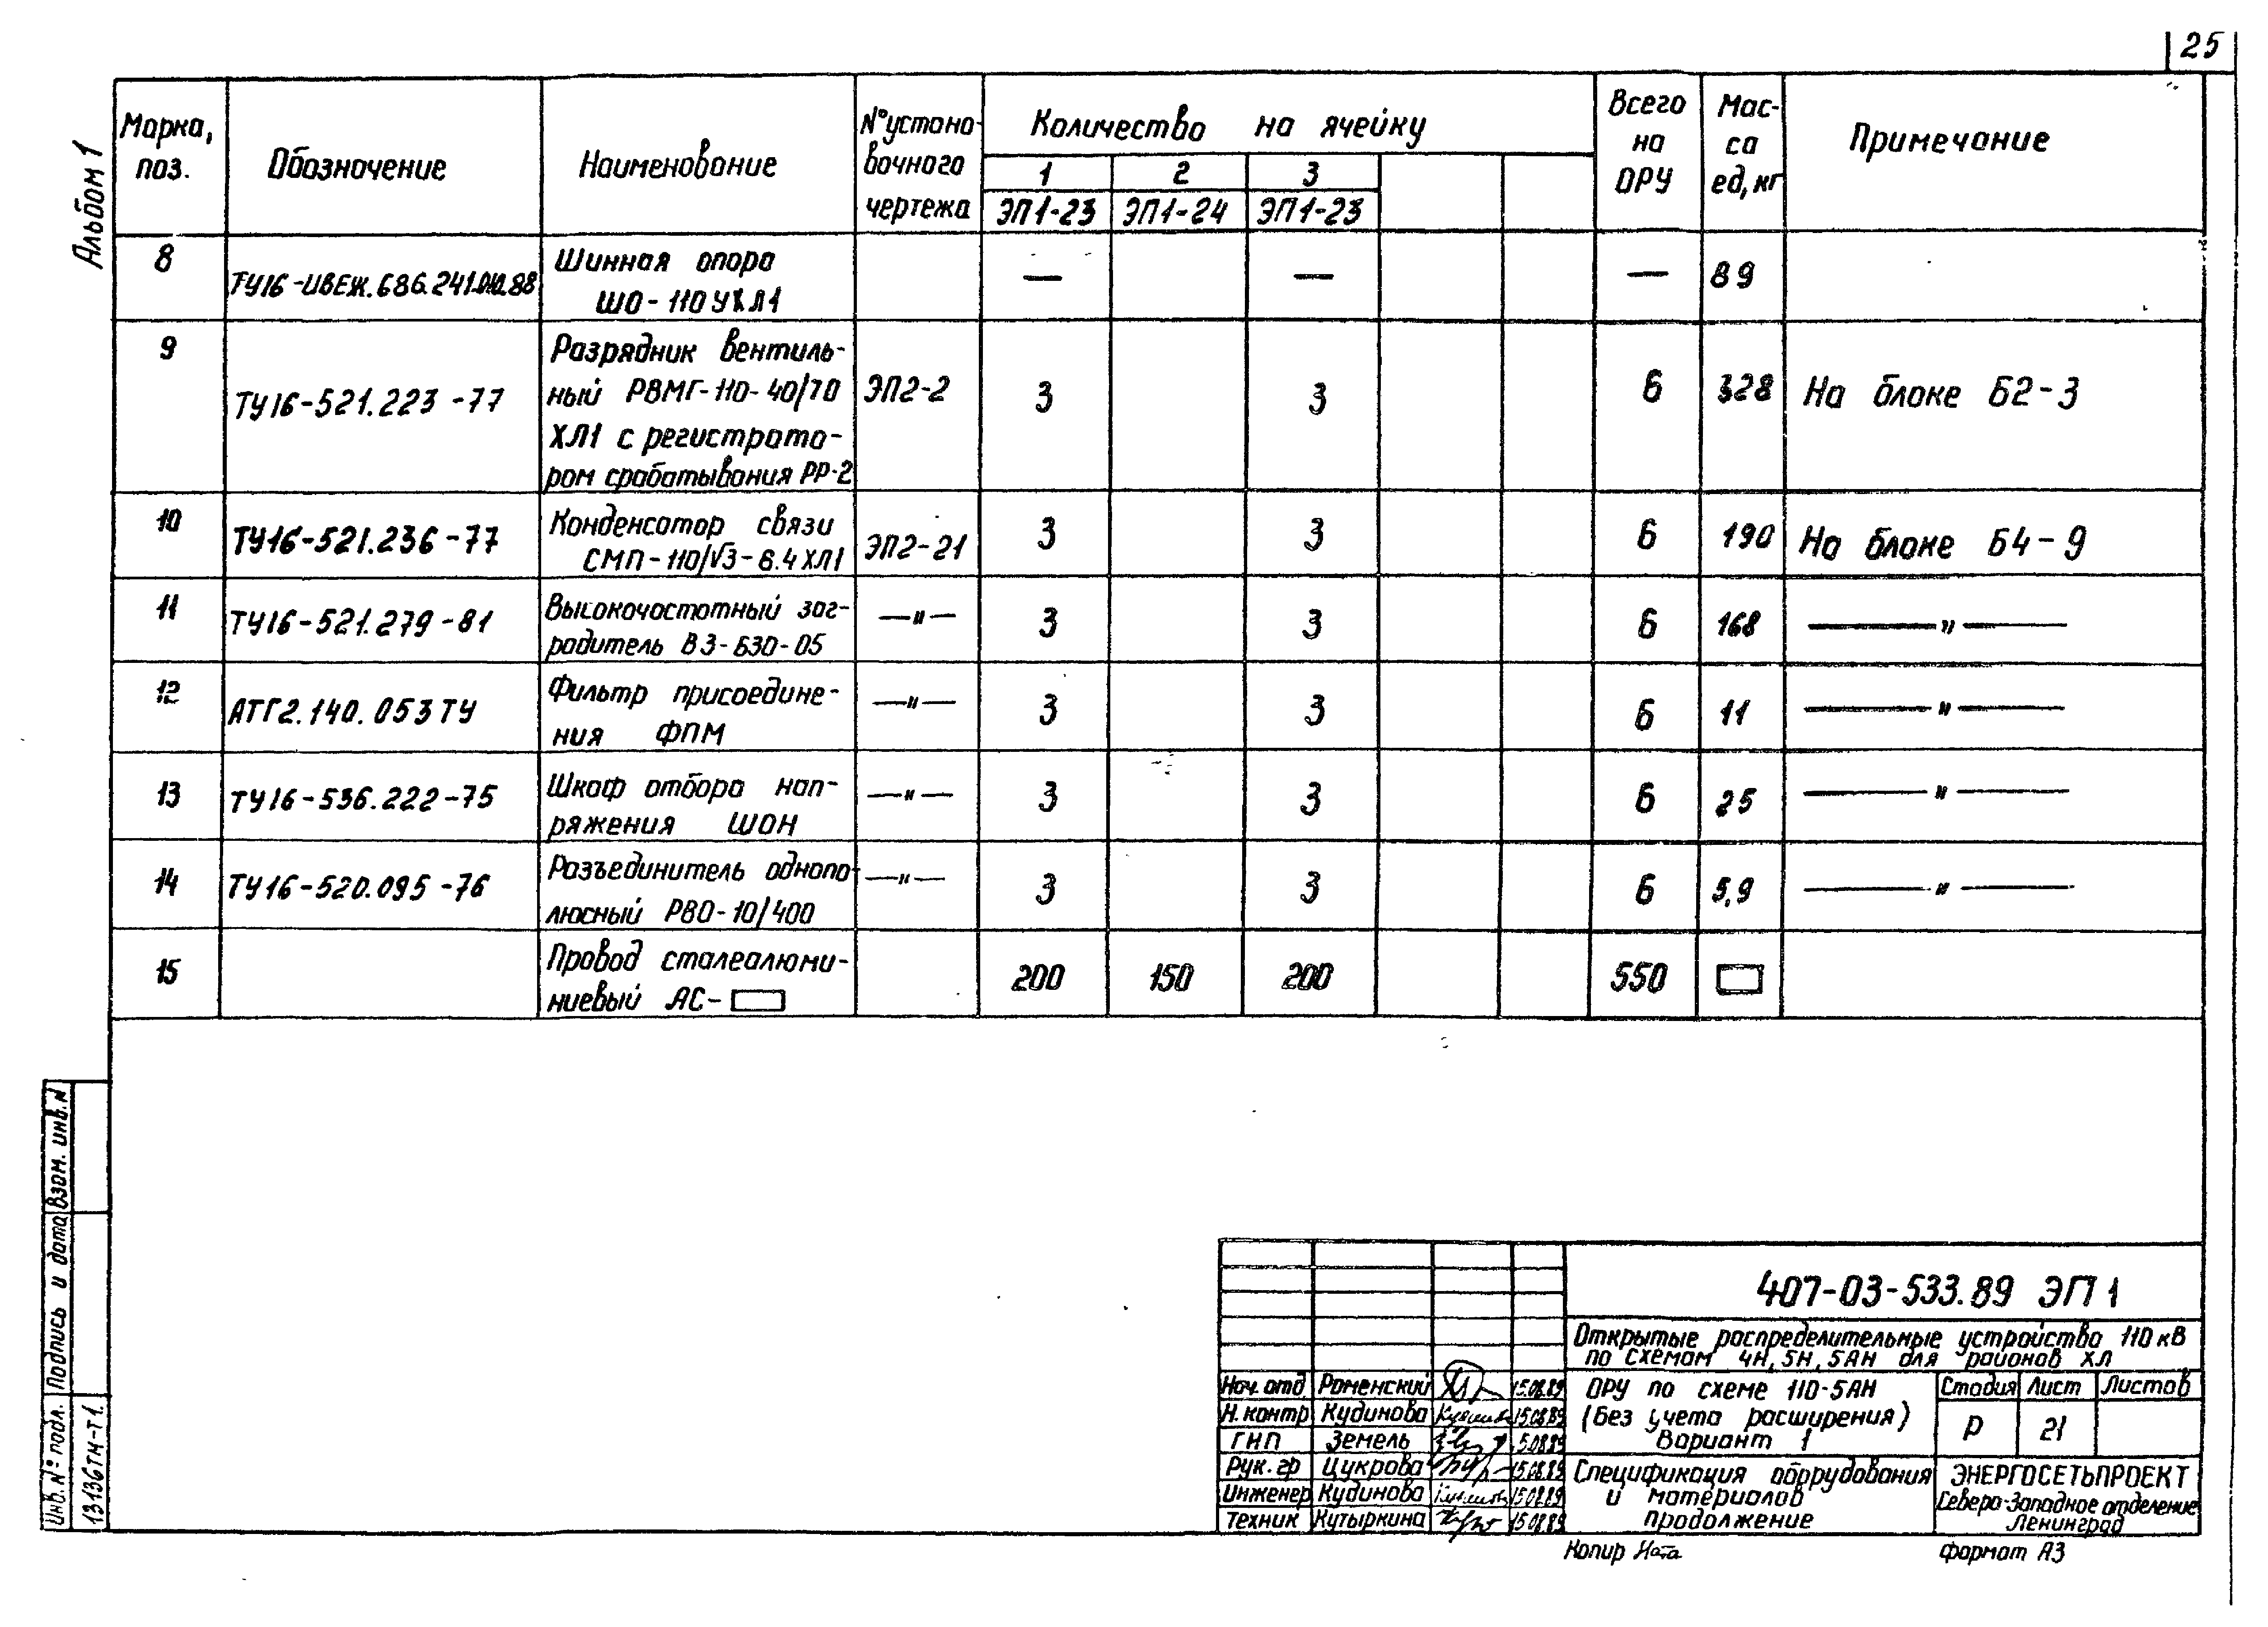 25
Альбом 1
Марка, поз.
Обозначение
Наименование
№ устано-
вочного
чертежа
Количество на ячейку
1 2 3
ЭП1-23 ЭП1-24 ЭП1-23
Всего
на
ОРУ
Мас-
са
ед, кг
Примечание
8 Шинная опора
ШО-110УХЛ1 — — — 89
9 ТУ16-521.223-77 Разрядник вентиль-
ный РВМГ-110-40/70 ЭП2-2 3 3 6 328 На блоке Б2-3
ХЛ1 с регистрато-
ром срабатывания РР-2
10 ТУ16-521.236-77 Конденсатор связи
СМП-110/√3-6.4ХЛ1 ЭП2-21 3 3 6 190 На блоке Б4-9
11 ТУ16-521.279-81 Высокочастотный заг-
радитель ВЗ-630-05 —"— 3 3 6 168 —"—
12 АТГ2.140.053ТУ Фильтр присоедине-
ния ФПМ —"— 3 3 6 11 —"—
13 ТУ16-536.222-75 Шкаф отбора нап-
ряжения ШОН —"— 3 3 6 25 —"—
14 ТУ16-520.095-76 Разъединитель однопо-
люсный РВО-10/400 —"— 3 3 6 5,9 —"—
15 Провод сталеалюми-
ниевый АС-□ 200 150 200 550 □
Взам. инв. №
Подпись и дата
Инв. № подл.
13136тм-т1.
407-03-533.89 ЭП1
Открытые распределительные устройства 110 кВ
по схемам 4Н, 5Н, 5АН для районов ХЛ
Нач. отд Роменский 15.08.89
Н. контр Кудинова 15.08.89
ГИП Земель 15.08.89
Рук. гр Цукрова 15.08.89
Инженер Кудинова 15.08.89
Техник Кутыркина 15.08.89
ОРУ по схеме 110-5АН
(Без учета расширения)
Вариант 1
Стадия Лист Листов
Р 21
Спецификация оборудования
и материалов
продолжение
ЭНЕРГОСЕТЬПРОЕКТ
Северо-Западное отделение
Ленинград
Копир Ната
формат А3